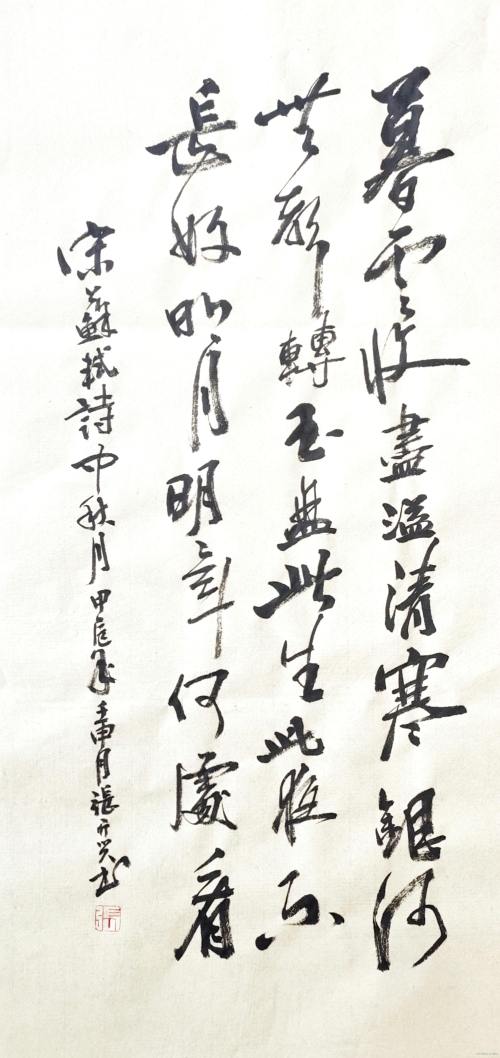 暮雲收盡溢清寒銀河
無聲轉玉盤此生此夜不
長好明月明年何處看
宋蘇軾詩中秋月甲辰年壬申月張開公書
張